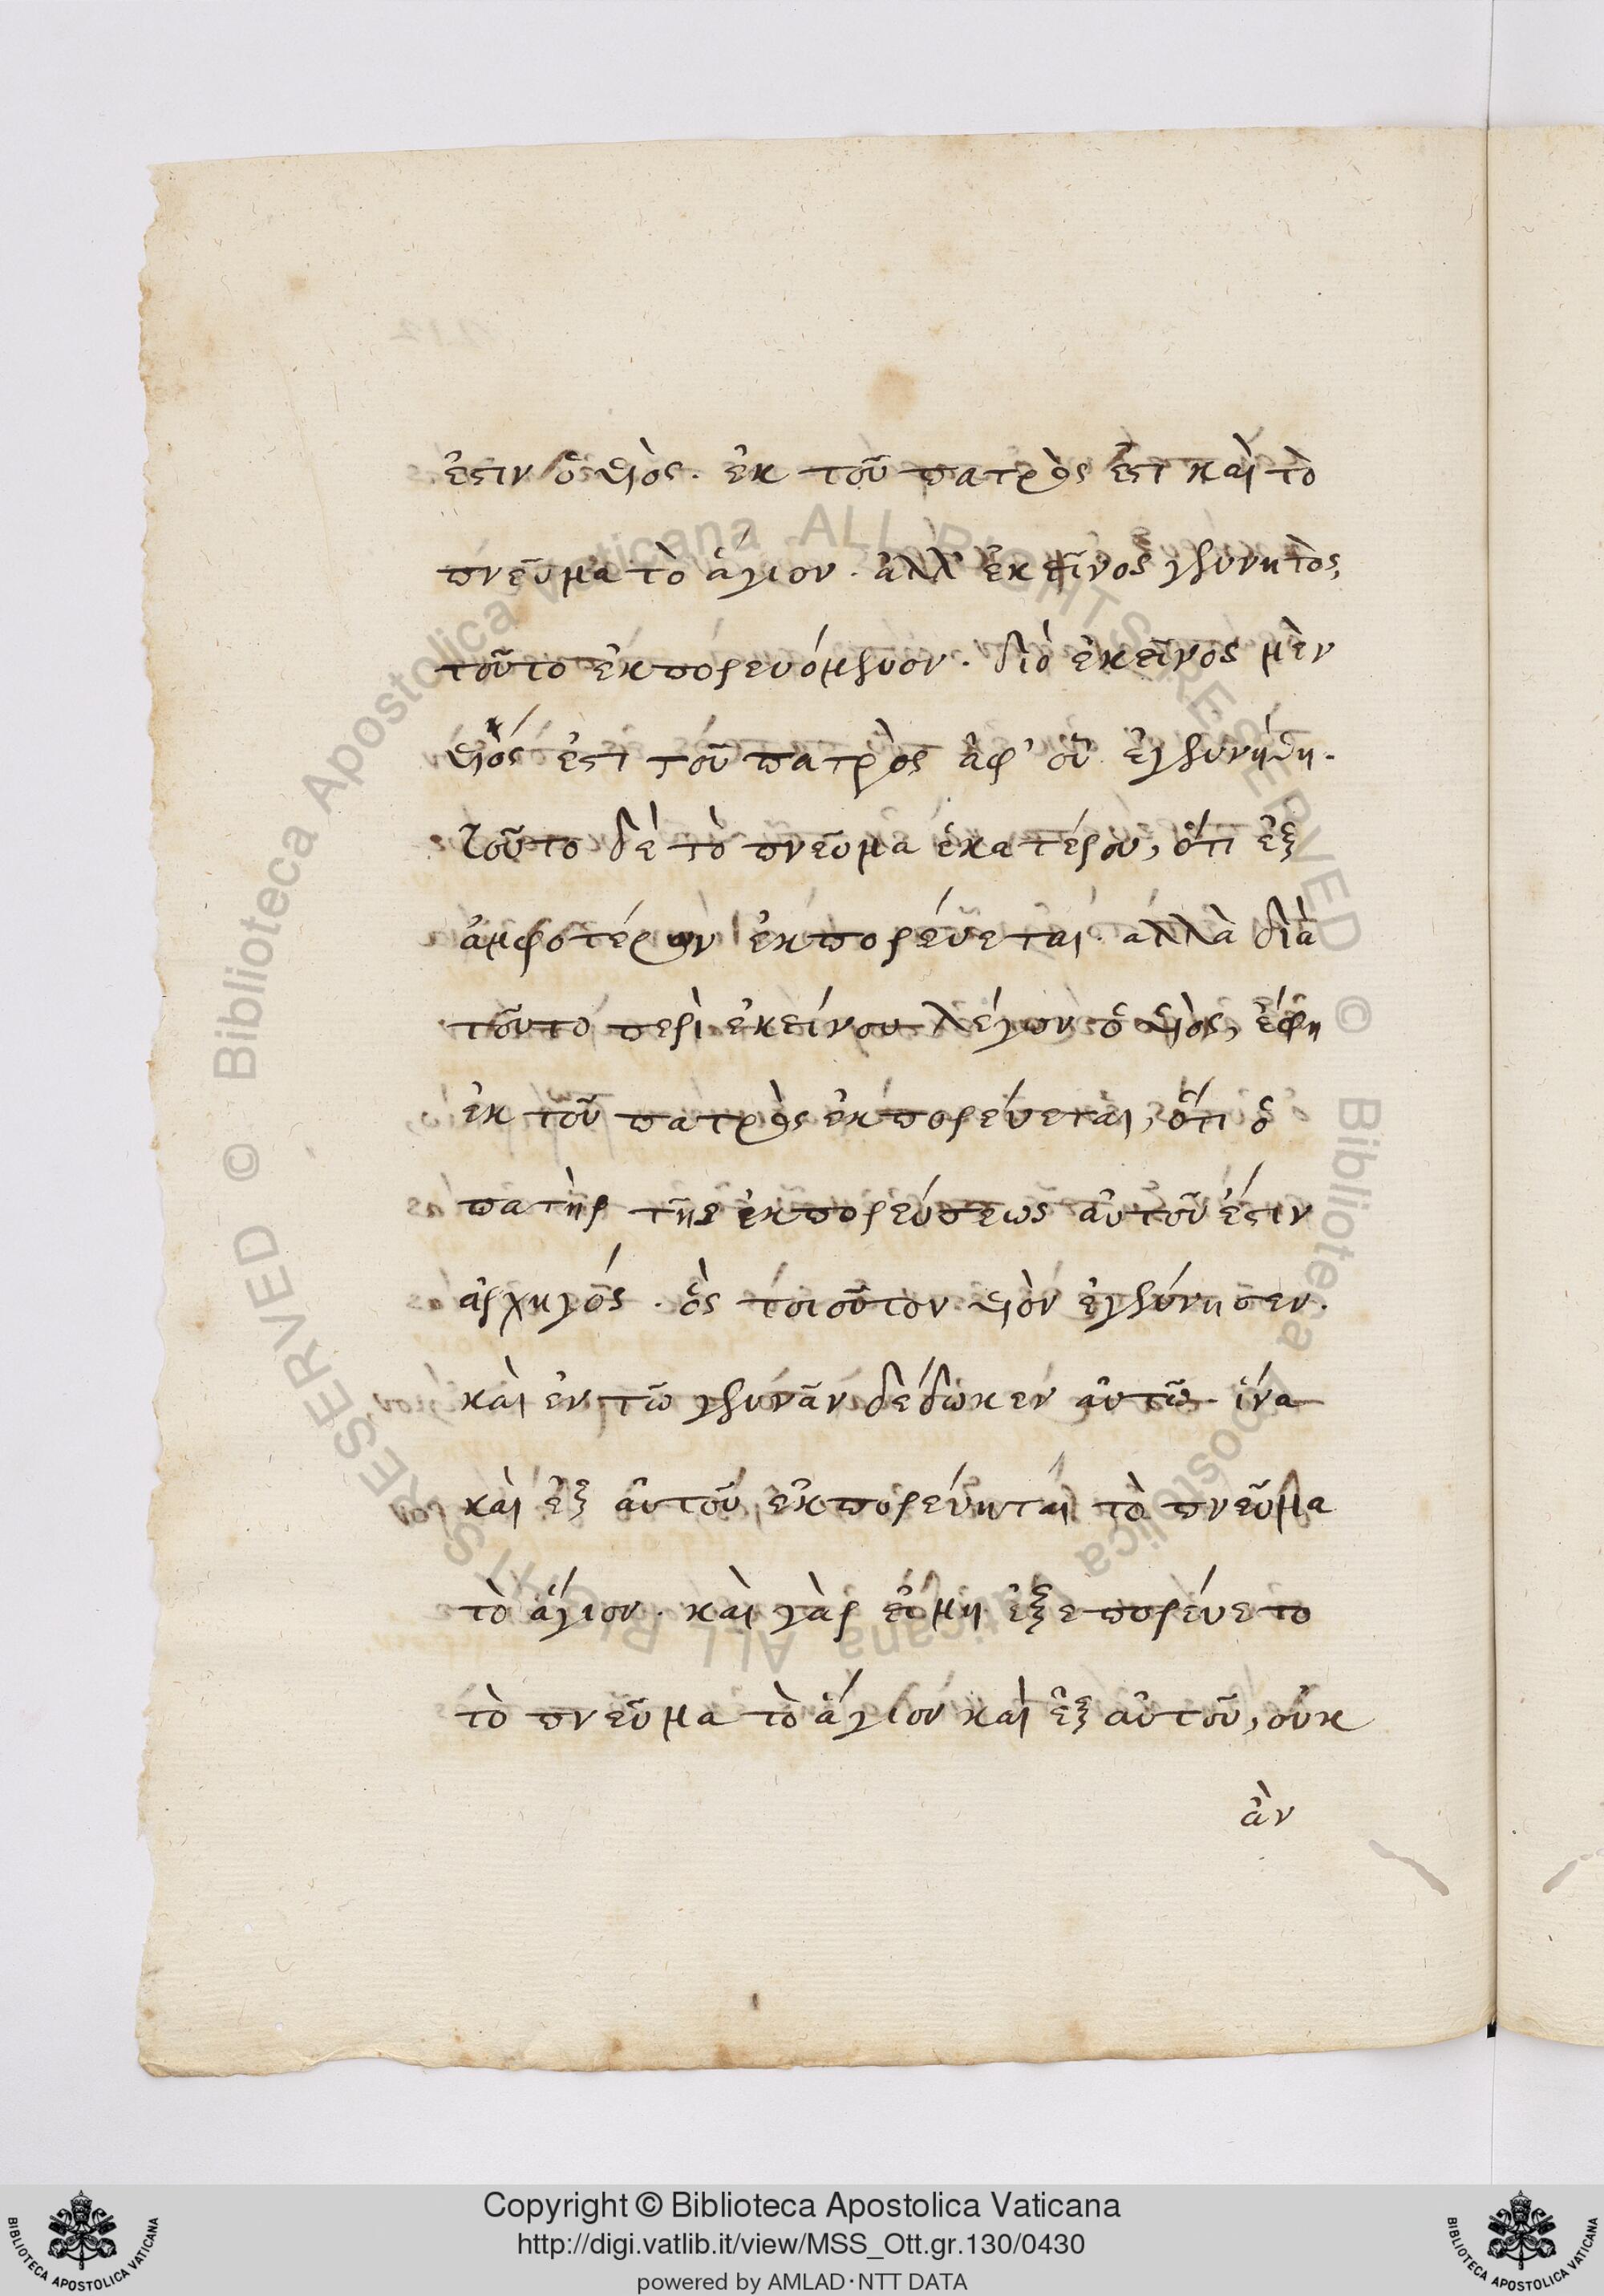 ἐστιν ὁ υἱὸς. ἐκ τοῦ πατρὸς ἐστι καὶ τὸ
πνεῦμα τὸ ἅγιον. ἀλλ' ἐκεῖνος γεννητὸς,
τοῦτο ἐκπορευόμενον. διὸ ἐκεῖνος μὲν
υἱός ἐστι τοῦ πατρὸς ἀφ' οὗ ἐγεννήθη.
Τοῦτο δὲ τὸ πνεῦμα ἑκατέρου, ὅτι ἐξ
ἀμφοτέρων ἐκπορεύεται. ἀλλὰ διὰ
τοῦτο περὶ ἐκείνου λέγων ὁ υἱὸς, ἔφη
ἐκ τοῦ πατρὸς ἐκπορεύεται, ὅτι ὁ
πατὴρ τῆς ἐκπορεύσεως αὐτοῦ ἐστιν
ἀρχηγός. ὃς τοιοῦτον υἱὸν ἐγέννησεν.
καὶ ἐν τῶ γεννᾶν δέδωκεν αὐτῶ. ἵνα
καὶ ἐξ αὐτοῦ ἐκπορεύηται τὸ πνεῦμα
τὸ ἅγιον. καὶ γὰρ εἰ μὴ ἐξεπορεύετο
τὸ πνεῦμα τὸ ἅγιον καὶ ἐξ αὐτοῦ, οὐκ
ἂν
© Biblioteca Apostolica Vaticana ALL RIGHTS RESERVED
© Biblioteca Apostolica Vaticana ALL RIGHTS RESERVED
Copyright © Biblioteca Apostolica Vaticana
http://digi.vatlib.it/view/MSS_Ott.gr.130/0430
powered by AMLAD·NTT DATA
BIBLIOTECA APOSTOLICA VATICANA
BIBLIOTECA APOSTOLICA VATICANA